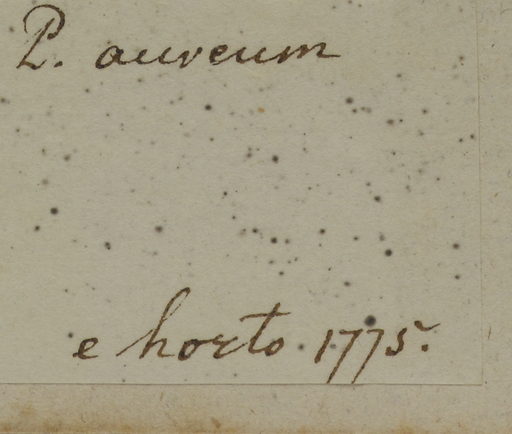 P. aureum
e horto. 1775.